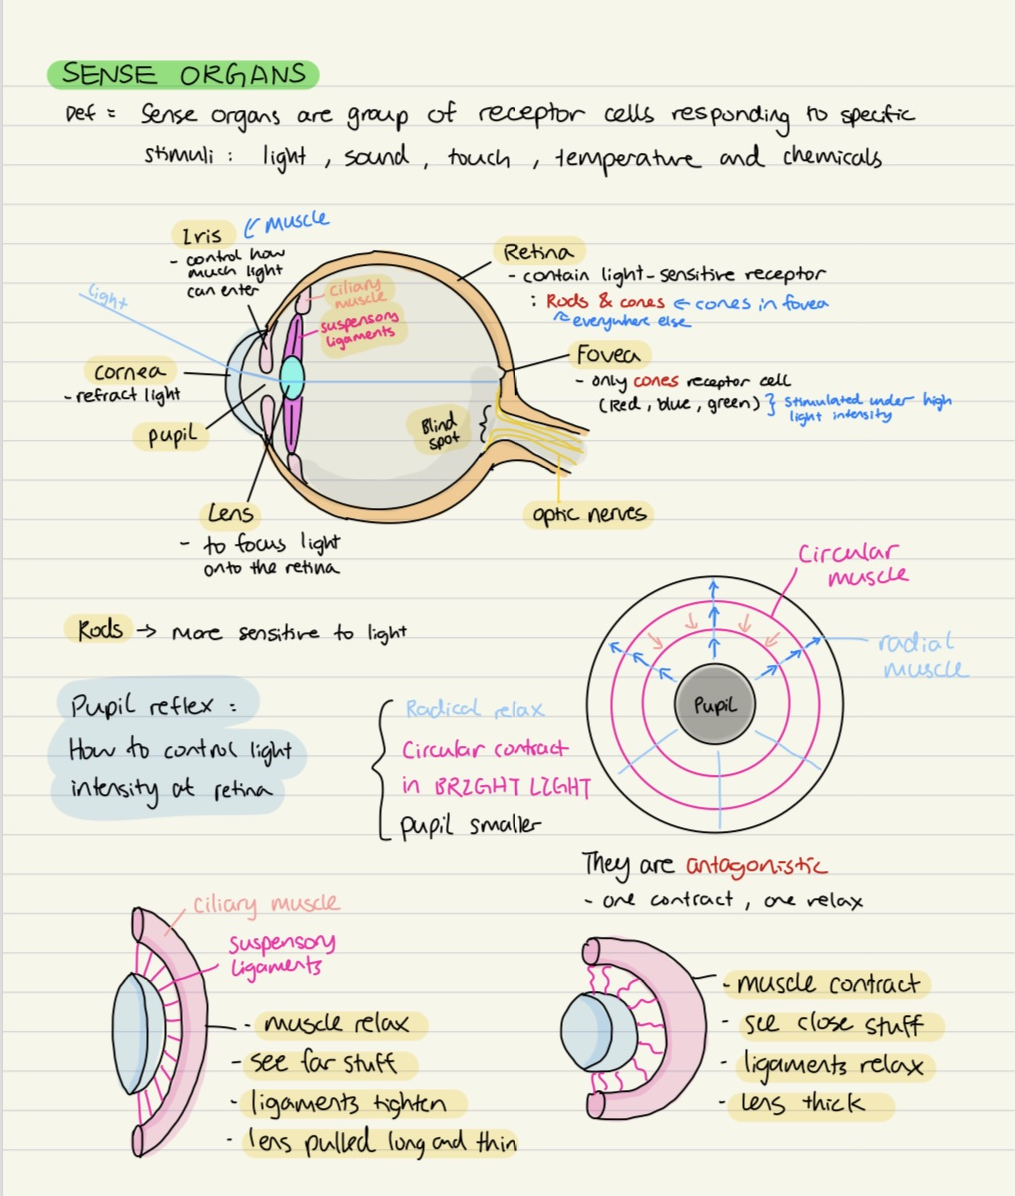 SENSE ORGANS
Def = Sense organs are group of receptor cells responding to specific
stimuli : light , sound , touch , temperature and chemicals
Iris
Muscle
- control how
much light
can enter
light
ciliary
muscle
suspensory
ligaments
Retina
- contain light-sensitive receptor
: Rods & cones ← cones in fovea
everywhere else
Fovea
- only cones receptor cell
(Red, blue, green) } stimulated under high
light intensity
cornea
- refract light
pupil
Blind
spot
Lens
- to focus light
onto the retina
optic nerves
Rods → more sensitive to light
Circular
muscle
radial
muscle
Pupil
Pupil reflex :
How to control light
intensity at retina
Radical relax
Circular contract
in BRIGHT LIGHT
pupil smaller
They are antagonistic
- one contract , one relax
ciliary muscle
suspensory
ligaments
- muscle relax
- see far stuff
- ligaments tighten
- lens pulled long and thin
- muscle contract
- see close stuff
- ligaments relax
- lens thick